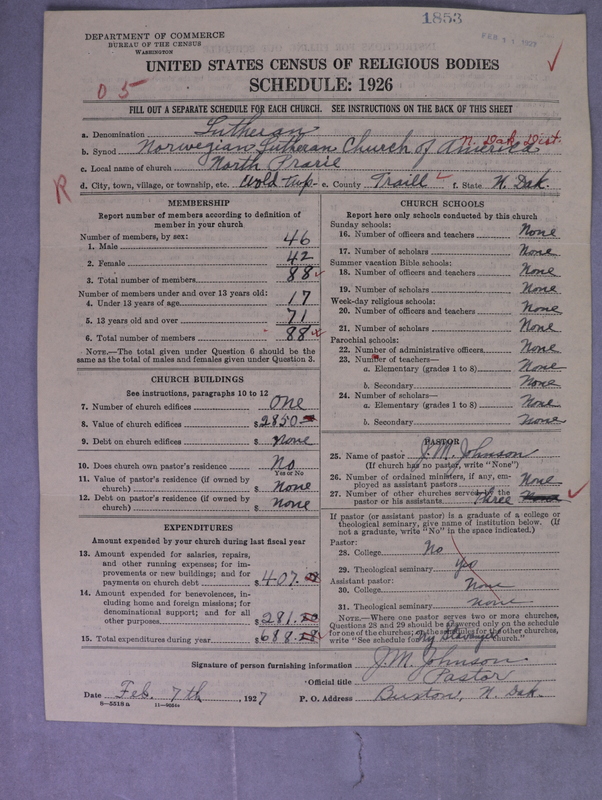 1853
DEPARTMENT OF COMMERCE
BUREAU OF THE CENSUS
WASHINGTON
FEB 1927
UNITED STATES CENSUS OF RELIGIOUS BODIES
SCHEDULE: 1926
0 5
FILL OUT A SEPARATE SCHEDULE FOR EACH CHURCH. SEE INSTRUCTIONS ON THE BACK OF THIS SHEET
a. Denomination Lutheran
b. Synod Norwegian Lutheran Church of America N. Dak. Dist.
c. Local name of church North Prarie
R
d. City, town, village, or township, etc. Wold twp. e. County Traill f. State N. Dak.
MEMBERSHIP
Report number of members according to definition of
member in your church
Number of members, by sex:
1. Male 46
2. Female 42
3. Total number of members 88
Number of members under and over 13 years old:
4. Under 13 years of age 17
5. 13 years old and over 71
6. Total number of members 88
NOTE.—The total given under Question 6 should be the
same as the total of males and females given under Question 3.
CHURCH BUILDINGS
See instructions, paragraphs 10 to 12
7. Number of church edifices One
8. Value of church edifices $ 2850
9. Debt on church edifices $ none
10. Does church own pastor's residence No
Yes or No
11. Value of pastor's residence (if owned by
church) $ None
12. Debt on pastor's residence (if owned by
church) $ none
EXPENDITURES
Amount expended by your church during last fiscal year
13. Amount expended for salaries, repairs,
and other running expenses; for im-
provements or new buildings; and for
payments on church debt $ 407.
14. Amount expended for benevolences, in-
cluding home and foreign missions; for
denominational support; and for all
other purposes $ 281.
15. Total expenditures during year $ 688.
CHURCH SCHOOLS
Report here only schools conducted by this church
Sunday schools:
16. Number of officers and teachers None
17. Number of scholars None
Summer vacation Bible schools:
18. Number of officers and teachers None
19. Number of scholars None
Week-day religious schools:
20. Number of officers and teachers None
21. Number of scholars None
Parochial schools:
22. Number of administrative officers None
23. Number of teachers—
a. Elementary (grades 1 to 8) None
b. Secondary None
24. Number of scholars—
a. Elementary (grades 1 to 8) None
b. Secondary None
PASTOR
25. Name of pastor J. M. Johnson
(If church has no pastor, write "None")
26. Number of ordained ministers, if any, em-
ployed as assistant pastors None
27. Number of other churches served by the
pastor or his assistants Three
If pastor (or assistant pastor) is a graduate of a college or
theological seminary, give name of institution below. (If
not a graduate, write "No" in the space indicated.)
Pastor:
28. College No
29. Theological seminary yes
Assistant pastor:
30. College None
31. Theological seminary none
NOTE.—Where one pastor serves two or more churches,
Questions 28 and 29 should be answered only on the schedule
for one of the churches; in the schedules for the other churches,
write "See schedule for Ny Stavanger church."
Signature of person furnishing information J. M. Johnson
Official title Pastor
Date Feb. 7th, 1927 P. O. Address Buxton, N. Dak.
8—5518a